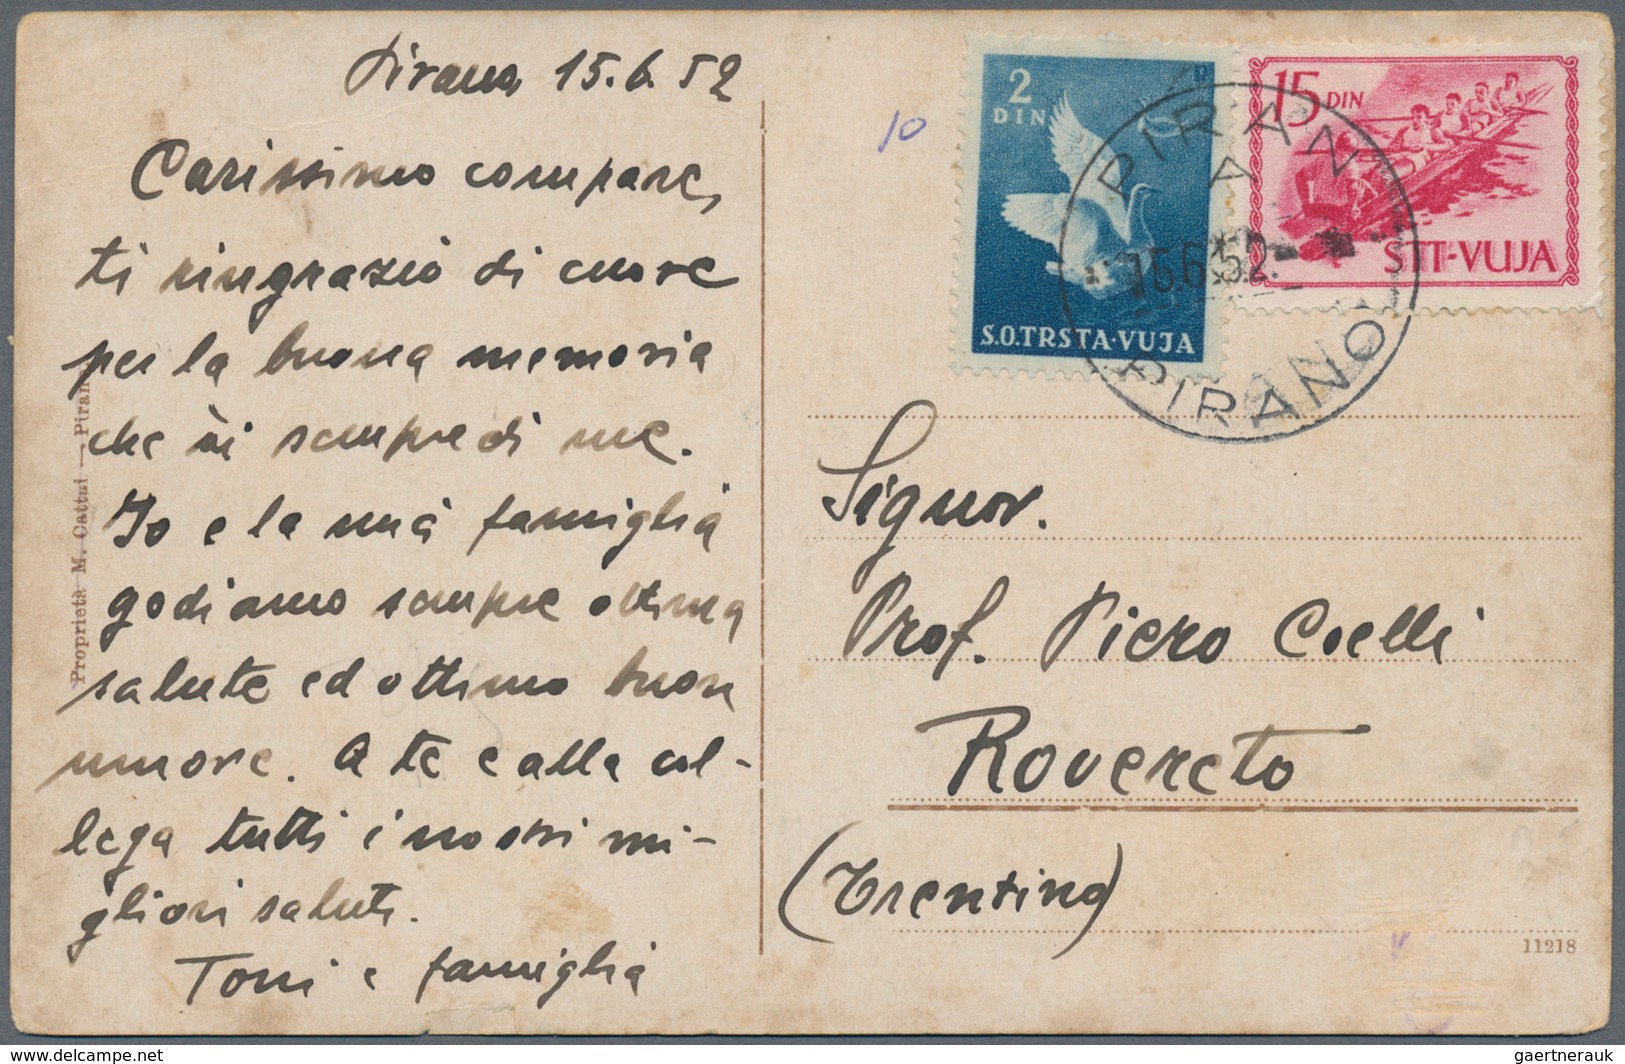 Pirano, 15.6.52
Carissimo compare,
ti ringrazio di cuore
per la buona memoria
che ài sempre di me.
Io e la mia famiglia
godiamo sempre ottima
salute ed ottimo buon
umore. A te e alla col-
lega tutti i nostri mi-
gliori saluti.
Toni e famiglia
Proprietà M. Cattai — Piran
10
2
DIN
S.O.TRSTA-VUJA
15 DIN
STT-VUJA
PIRAN
A
15.6.52.
PIRANO
Signor.
Prof. Piero Coelli
Rovereto
(Trentino)
11218
gaertnerauk
delcampe.net